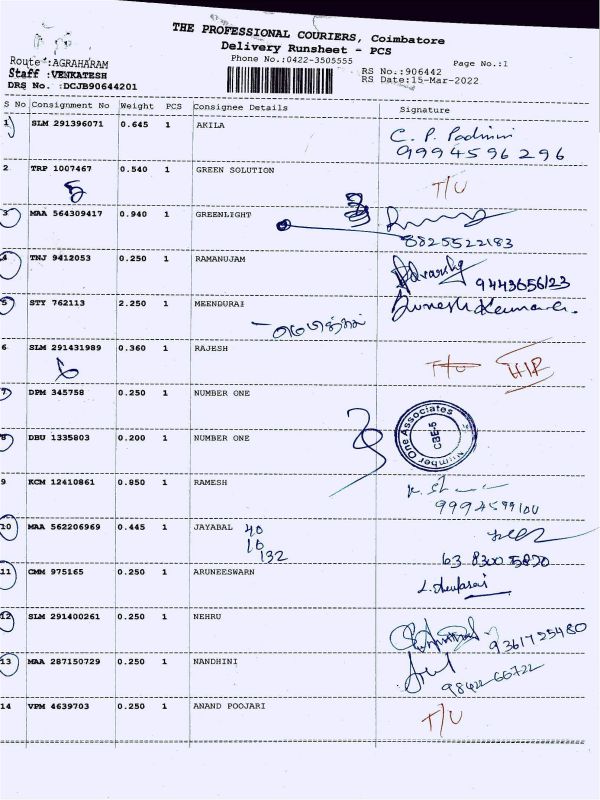 THE PROFESSIONAL COURIERS, Coimbatore
Delivery Runsheet - PCS
Phone No.:0422-3505555
Page No.:1
Route :AGRAHARAM
Staff :VENKATESH
DRS No. :DCJB90644201
RS No.:906442
RS Date:15-Mar-2022
S No Consignment No Weight PCS Consignee Details Signature
1 SLM 291396071 0.645 1 AKILA C. P. Padmini
9994596296
2 TRP 1007467 0.540 1 GREEN SOLUTION T/U
3 MAA 564309417 0.940 1 GREENLIGHT
8825522183
4 TNJ 9412053 0.250 1 RAMANUJAM 9443656123
5 STY 762113 2.250 1 MEENDURAI
6 SLM 291431989 0.360 1 RAJESH T/U
7 DPM 345758 0.250 1 NUMBER ONE
Number One Associates
CBE-5
8 DBU 1335803 0.200 1 NUMBER ONE
9 KCM 12410861 0.850 1 RAMESH
10 MAA 562206969 0.445 1 JAYABAL 40
10
132
63 8300 5870
11 CMM 975165 0.250 1 ARUNEESWARN
12 SLM 291400261 0.250 1 NEHRU 9361725480
13 MAA 287150729 0.250 1 NANDHINI
98422-66722
14 VPM 4639703 0.250 1 ANAND POOJARI T/U